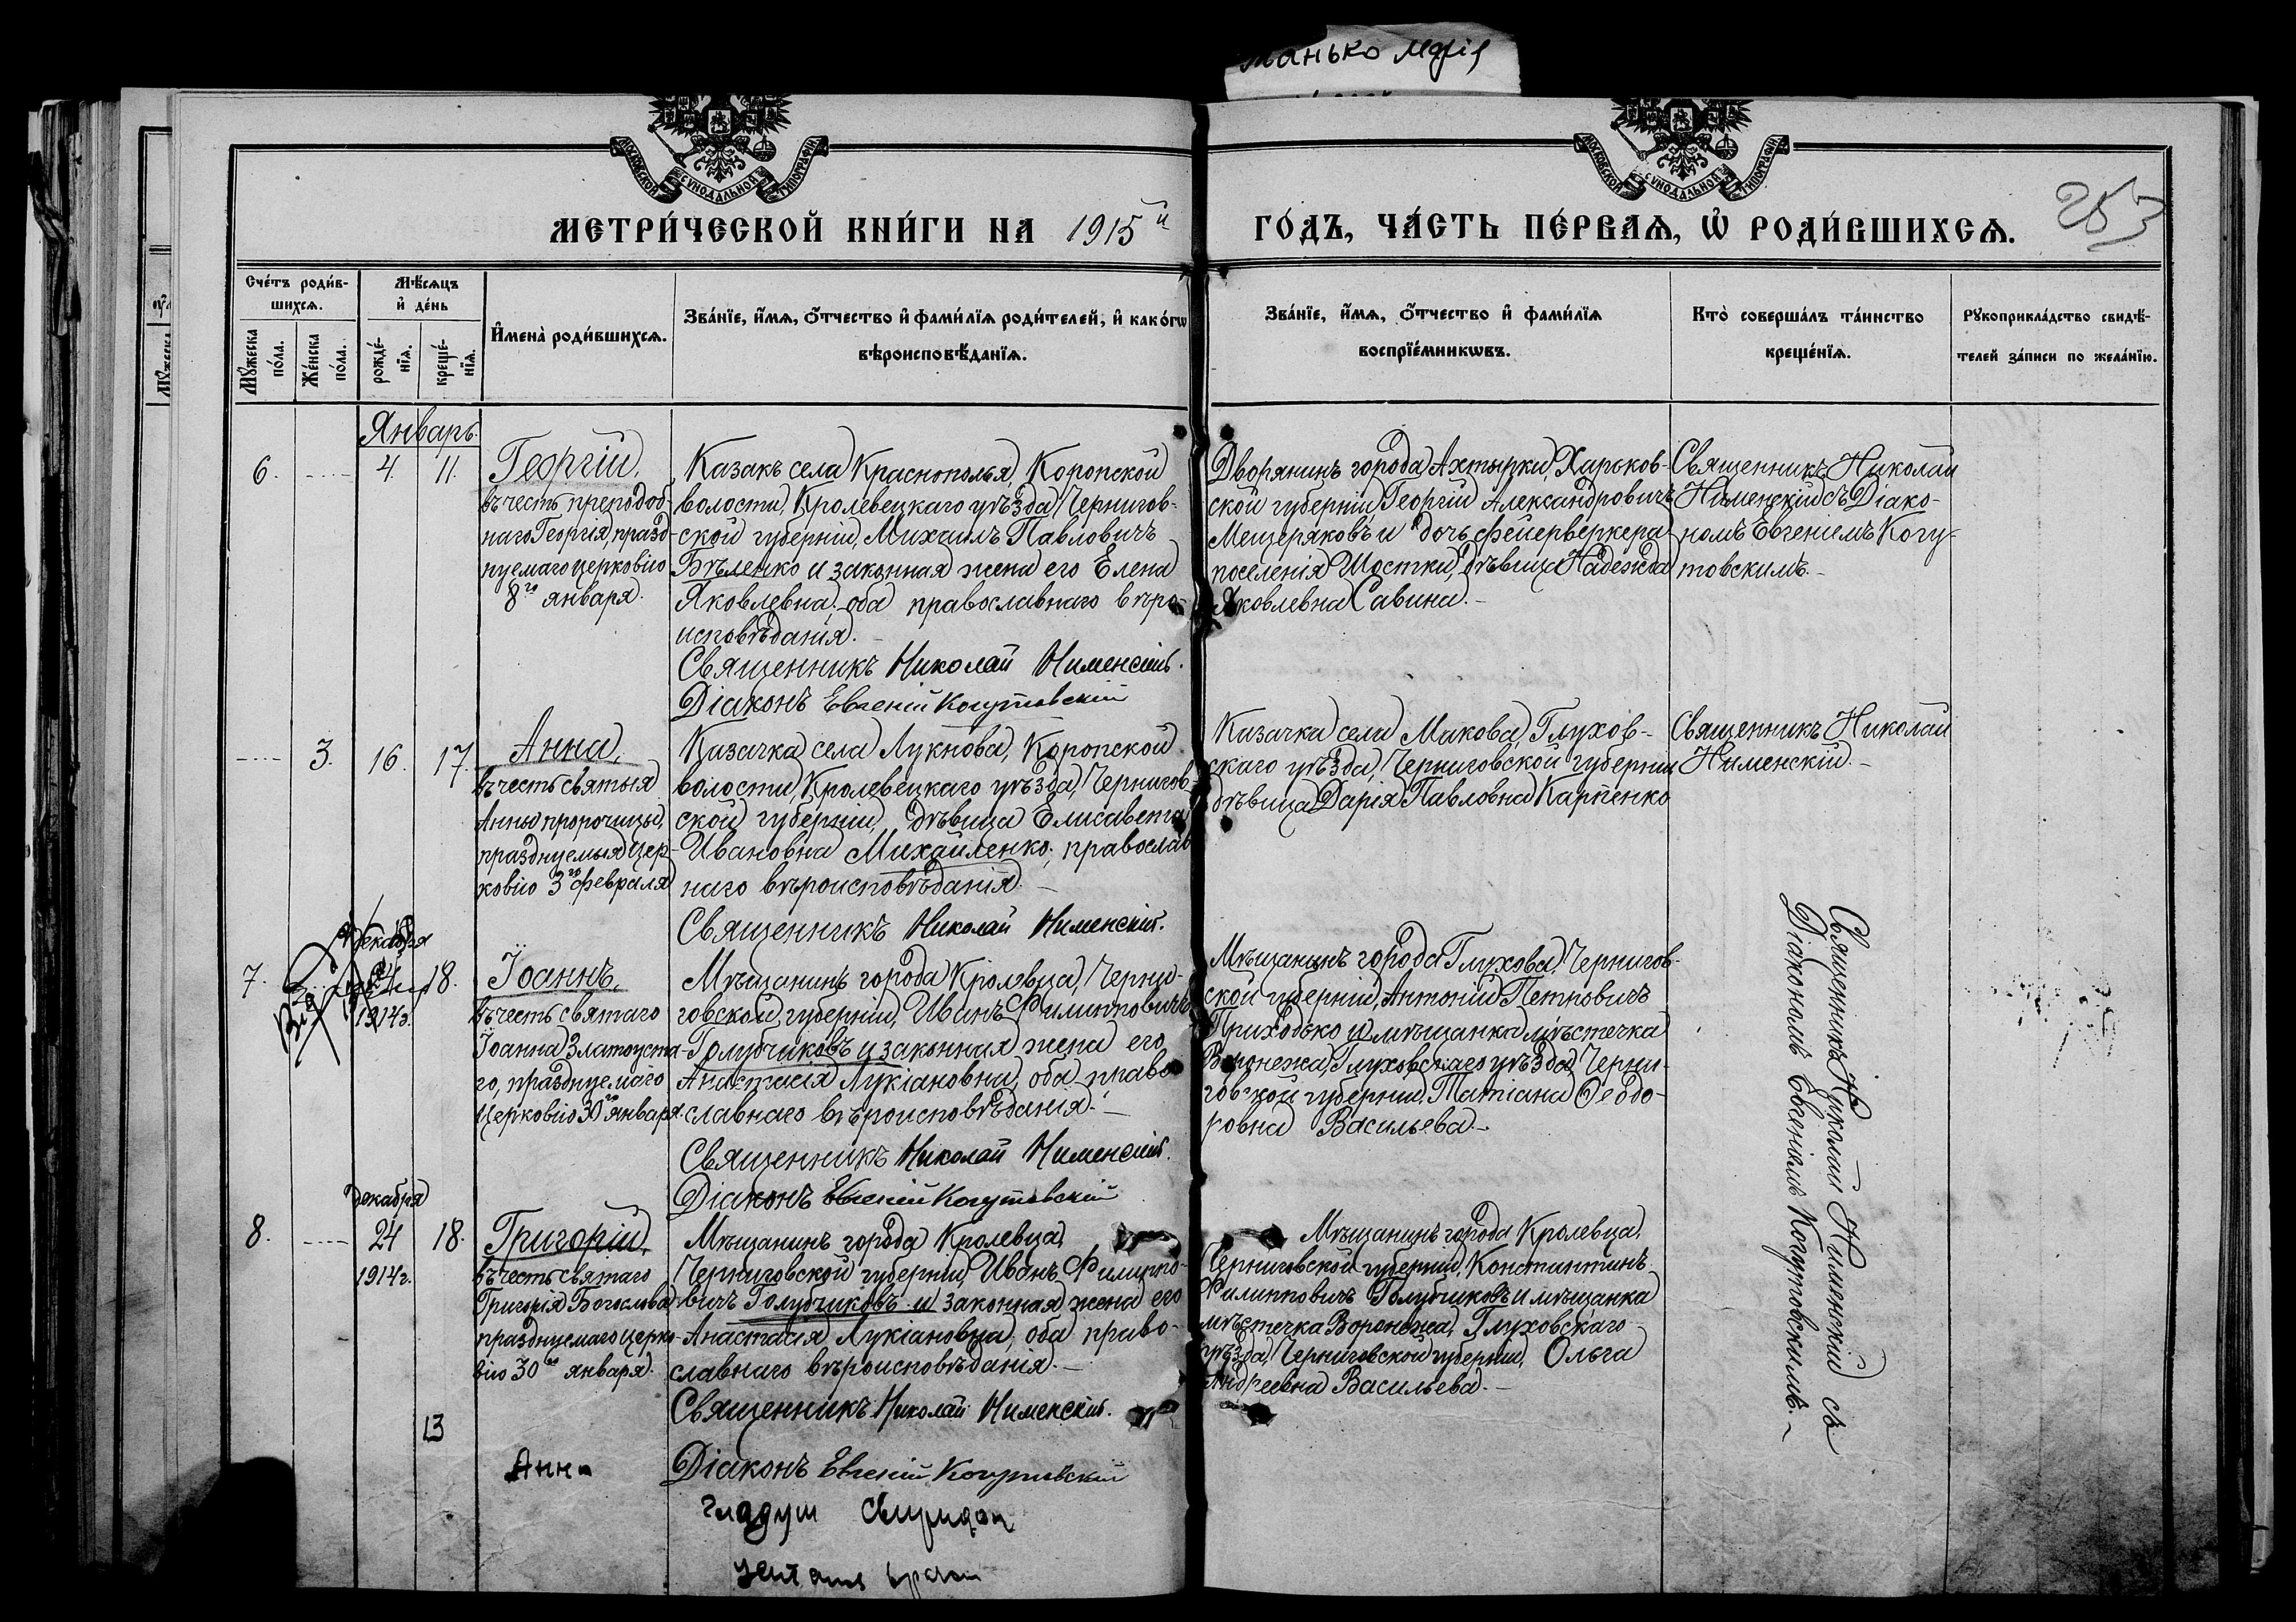 МОСКОВСКОЙ СѴНОДАЛЬНОЙ ТИПОГРАФІИ
МОСКОВСКОЙ СѴНОДАЛЬНОЙ ТИПОГРАФІИ
МЕТРИ́ЧЕСКОЙ КНИ́ГИ НА 1915й
ГО́ДЪ, ЧА́СТЬ ПЕ́РВАѦ, Ѡ҆ РОДИ́ВШИХСѦ.
253
Сче́тъ роди́в-
шихсѧ.
Мꙋ́жеска по́ла.
Же́нска по́ла.
Мѣ́сѧцъ
и҆ де́нь
рожде́-
нїѧ.
креще́-
нїѧ.
И҆мена̀ роди́вшихсѧ.
Зва́нїе, и҆́мѧ, ѻ҆́тчество и҆ фами́лїѧ роди́телей, и҆ како́гѡ
вѣроисповѣ́данїѧ.
Зва́нїе, и҆́мѧ, ѻ҆́тчество и҆ фами́лїѧ
воспрїе́мникѡвъ.
Кто̀ соверша́лъ та́инство
креще́нїѧ.
Рꙋкоприкла́дство свидѣ́-
телей за́писи по жела́нїю.
Январь
6. 4. 11.
Георгій,
въ честь преподоб-
наго Георгія, празд-
нуемаго церковію
8го января.
Казакъ села Краснополья, Коропской
волости, Кролевецкаго уѣзда, Чернигов-
ской губерніи, Михаилъ Павловичъ
Бѣленко и законная жена его Елена
Яковлевна, оба православнаго вѣро-
исповѣданія.
Священникъ Николай Нименскій.
Діаконъ Евгеній Когутовскій
Дворянинъ города Ахтырки, Харьков-
ской губерніи, Георгій Александровичъ
Мещеряковъ и дочь фейерверкера
поселенія Шостки, дѣвица Надежда
Яковлевна Савина.
Священникъ Николай
Нименскій съ Діако-
номъ Евгеніемъ Когу-
товскимъ.
3. 16. 17.
Анна,
въ честь святыя
Анны пророчицы,
празднуемыя цер-
ковію 3го февраля
Казачка села Лукнова, Коропской
волости, Кролевецкаго уѣзда, Чернигов-
ской губерніи, дѣвица Елисавета
Ивановна Михайленко, православ-
наго вѣроисповѣданія.
Священникъ Николай Нименскій.
Казачка села Макова, Глухов-
скаго уѣзда, Черниговской губерніи,
дѣвица Дарія Павловна Карпенко
Священникъ Николай
Нименскій.
Декабря
7. 24 18.
1914г.
Іоаннъ,
въ честь святаго
Іоанна Златоуста-
го, празднуемаго
церковію 30го января.
Мѣщанинъ города Кролевца, Черни-
говской губерніи, Иванъ Филипповичъ
Голубчиковъ и законная жена его
Анастасія Лукіановна, оба право-
славнаго вѣроисповѣданія.
Священникъ Николай Нименскій.
Діаконъ Евгеній Когутовскій
Мѣщанинъ города Глухова, Чернигов-
ской губерніи, Антоній Петровичъ
Приходько и мѣщанка мѣстечка
Воронежа, Глуховскаго уѣзда, Черни-
говской губерніи, Татіана Ѳеодо-
ровна Васильева.
Священникъ Николай Нименскій съ
Діакономъ Евгеніемъ Когутовскимъ.
Декабря
8. 24 18.
1914г.
Григорій,
въ честь святаго
Григорія Богослова,
празднуемаго церко-
вію 30го января.
Мѣщанинъ города Кролевца,
Черниговской губерніи, Иванъ Филиппо-
вичъ Голубчиковъ и законная жена его
Анастасія Лукіановна, оба право-
славнаго вѣроисповѣданія.
Священникъ Николай Нименскій.
Діаконъ Евгеній Когутовскій
Мѣщанинъ города Кролевца,
Черниговской губерніи, Константинъ
Филипповичъ Голубчиковъ и мѣщанка
мѣстечка Воронежа, Глуховскаго
уѣзда, Черниговской губерніи, Ольга
Андреевна Васильева.
13
Анна
гладуш